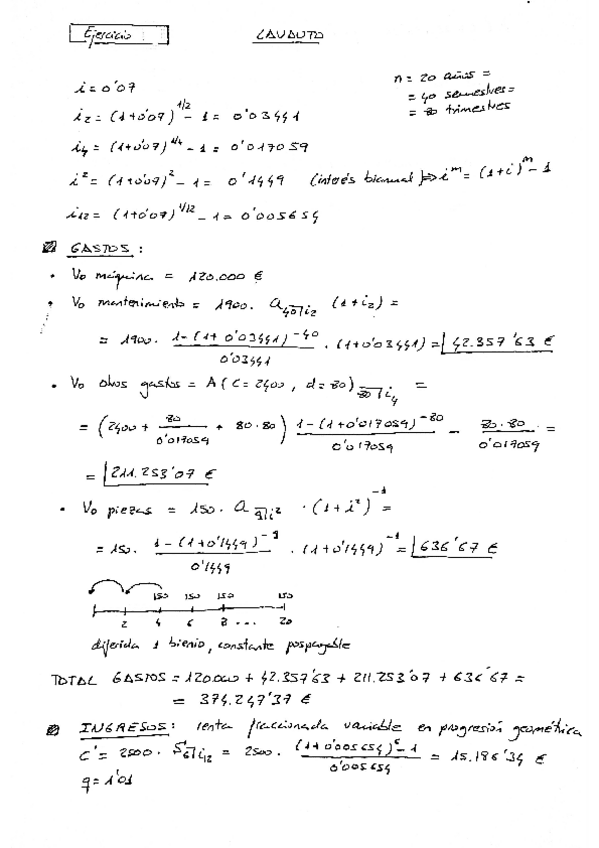 Ejercicio :
LAVAUTO
n = 20 años =
= 40 semestres =
= 80 trimestres
i = 0'07
i2 = (1+0'07)^1/2 - 1 = 0'03441
i4 = (1+0'07)^1/4 - 1 = 0'017059
i^2 = (1+0'07)^2 - 1 = 0'1449 (interés bianual) ⇒ i^m = (1+i)^m - 1
i12 = (1+0'07)^1/12 - 1 = 0'005654
GASTOS :
• Vo máquina = 120.000 €
• Vo mantenimiento = 1900. a40|i2 (1+i2) =
= 1900. 1-(1+0'03441)^-40 / 0'03441 . (1+0'03441) = 42.357'63 €
• Vo otros gastos = A(C=2400, d=80)80|i4 =
= (2400 + 80/0'017059 + 80.80) 1-(1+0'017059)^-80 / 0'017059 - 80.80/0'017059 =
= 211.253'07 €
• Vo piezas = 150. a9|i^2 . (1+i^2)^-1 =
= 150. 1-(1+0'1449)^-9 / 0'1449 . (1+0'1449)^-1 = 636'67 €
150 150 150 150
2 4 6 8 ... 20
diferida 1 bienio, constante pospagable
TOTAL GASTOS = 120.000 + 42.357'63 + 211.253'07 + 636'67 =
= 374.247'37 €
INGRESOS : renta fraccionada variable en progresión geométrica
C' = 2500. S6|i12 = 2500. (1+0'005654)^6 - 1 / 0'005654 = 15.186'34 €
q = 1'01